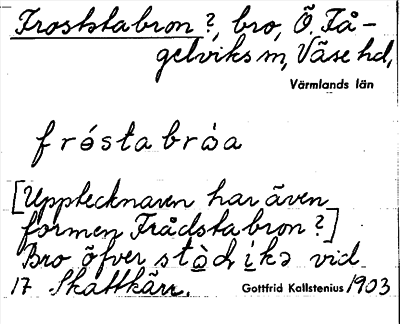 Froststabron?, bro, Ö. Få-
gelviks sn, Väse hd,
Värmlands län
fróstabròa
[Upptecknaren har även
formen Frådstabron?]
Bro öfver stòd, ikə vid
17 Skattkärr. Gottfrid Kallstenius 1903